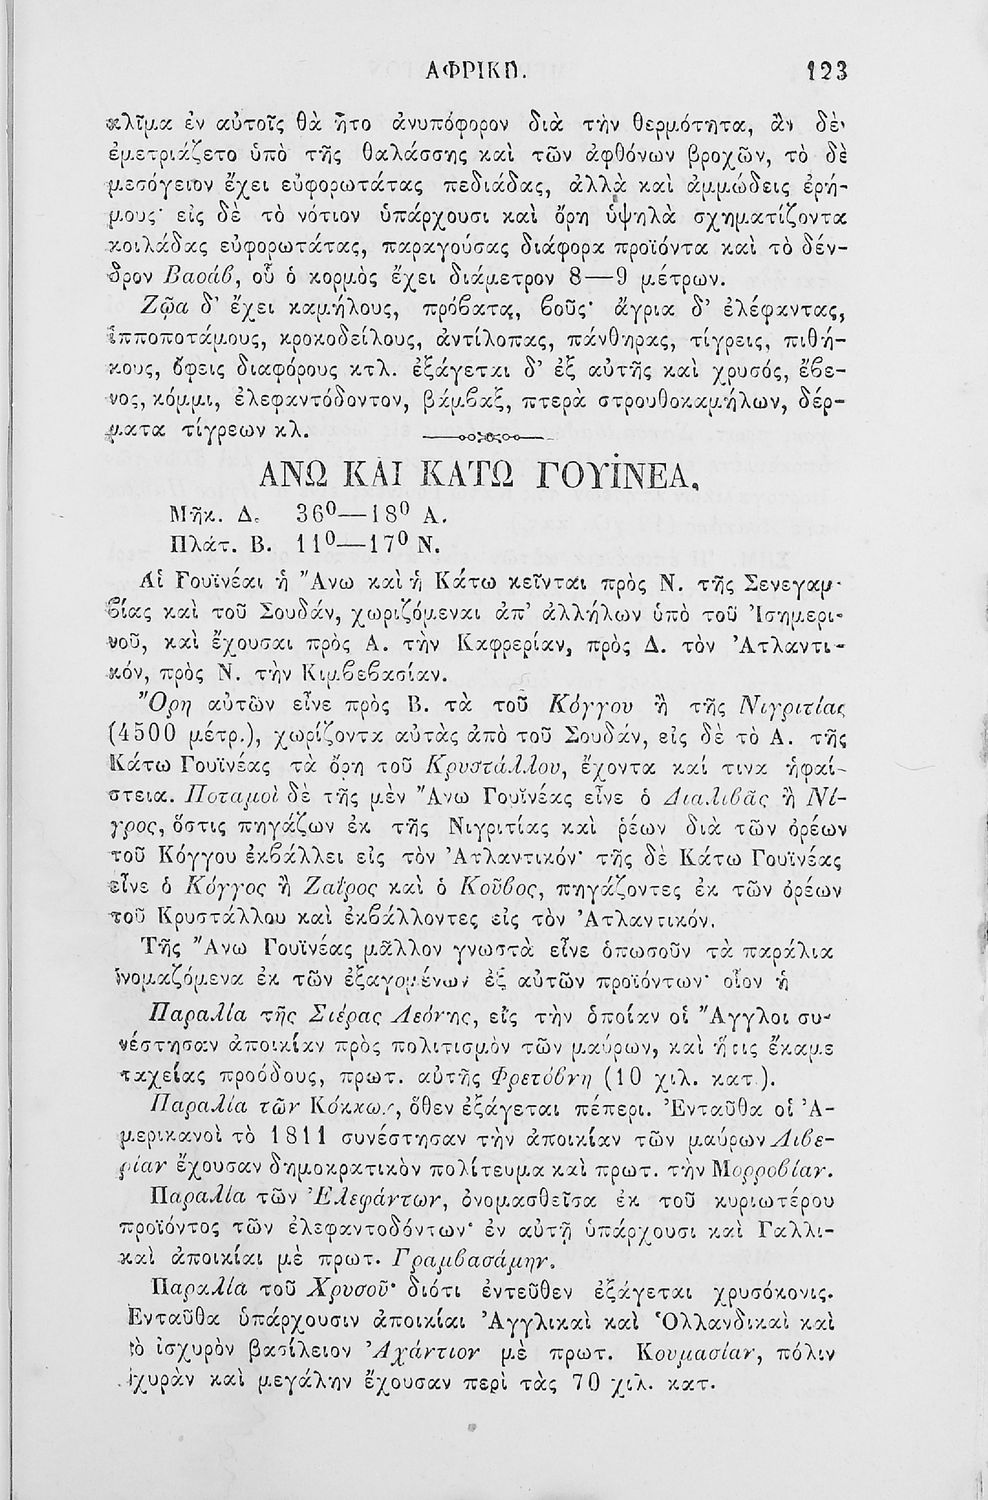 ΑΦΡΙΚΗ. 123
κλῖμα ἐν αὐτοῖς θὰ ἦτο ἀνυπόφορον διὰ τὴν θερμότητα, ἂν δὲν
ἐμετριάζετο ὑπὸ τῆς θαλάσσης καὶ τῶν ἀφθόνων βροχῶν, τὸ δὲ
μεσόγειον ἔχει εὐφορωτάτας πεδιάδας, ἀλλὰ καὶ ἀμμώδεις ἐρή-
μους· εἰς δὲ τὸ νότιον ὑπάρχουσι καὶ ὄρη ὑψηλὰ σχηματίζοντα
κοιλάδας εὐφορωτάτας, παραγούσας διάφορα προϊόντα καὶ τὸ δέν-
δρον Βαοάβ, οὗ ὁ κορμὸς ἔχει διάμετρον 8—9 μέτρων.
Ζῷα δ' ἔχει καμήλους, πρόβατα, βοῦς· ἄγρια δ' ἐλέφαντας,
ἱπποποτάμους, κροκοδείλους, ἀντίλοπας, πάνθηρας, τίγρεις, πιθή-
κους, ὄφεις διαφόρους κτλ. ἐξάγεται δ' ἐξ αὐτῆς καὶ χρυσός, ἔβε-
νος, κόμμι, ἐλεφαντόδοντον, βάμβαξ, πτερὰ στρουθοκαμήλων, δέρ-
ματα τίγρεων κλ.
ΑΝΩ ΚΑΙ ΚΑΤΩ ΓΟΥΙΝΕΑ.
Μῆκ. Δ. 36⁰—18⁰ Α.
Πλάτ. Β. 11⁰—17⁰ Ν.
Αἱ Γουϊνέαι ἡ Ἄνω καὶ ἡ Κάτω κεῖνται πρὸς Ν. τῆς Σενεγαμ-
βίας καὶ τοῦ Σουδάν, χωριζόμεναι ἀπ' ἀλλήλων ὑπὸ τοῦ Ἰσημερι-
νοῦ, καὶ ἔχουσαι πρὸς Α. τὴν Καφρερίαν, πρὸς Δ. τὸν Ἀτλαντι-
κόν, πρὸς Ν. τὴν Κιμβεβασίαν.
Ὄρη αὐτῶν εἶνε πρὸς Β. τὰ τοῦ Κόγγου ἢ τῆς Νιγριτίας
(4500 μέτρ.), χωρίζοντα αὐτὰς ἀπὸ τοῦ Σουδάν, εἰς δὲ τὸ Α. τῆς
Κάτω Γουϊνέας τὰ ὄρη τοῦ Κρυστάλλου, ἔχοντα καί τινα ἡφαί-
στεια. Ποταμοὶ δὲ τῆς μὲν Ἄνω Γουϊνέας εἶνε ὁ Διαλιβᾶς ἢ Νί-
γρος, ὅστις πηγάζων ἐκ τῆς Νιγριτίας καὶ ῥέων διὰ τῶν ὀρέων
τοῦ Κόγγου ἐκβάλλει εἰς τὸν Ἀτλαντικόν· τῆς δὲ Κάτω Γουϊνέας
εἶνε ὁ Κόγγος ἢ Ζαΐρος καὶ ὁ Κοῦβος, πηγάζοντες ἐκ τῶν ὀρέων
τοῦ Κρυστάλλου καὶ ἐκβάλλοντες εἰς τὸν Ἀτλαντικόν.
Τῆς Ἄνω Γουϊνέας μᾶλλον γνωστὰ εἶνε ὁπωσοῦν τὰ παράλια
ὀνομαζόμενα ἐκ τῶν ἐξαγομένων ἐξ αὐτῶν προϊόντων· οἷον ἡ
Παραλία τῆς Σιέρας Λεόνης, εἰς τὴν ὁποίαν οἱ Ἄγγλοι συ-
νέστησαν ἀποικίαν πρὸς πολιτισμὸν τῶν μαύρων, καὶ ἥτις ἔκαμε
ταχείας προόδους, πρωτ. αὐτῆς Φρετόβνη (10 χιλ. κατ.).
Παραλία τῶν Κόκκων, ὅθεν ἐξάγεται πέπερι. Ἐνταῦθα οἱ Ἀ-
μερικανοὶ τὸ 1811 συνέστησαν τὴν ἀποικίαν τῶν μαύρων Λιβε-
ρίαν ἔχουσαν δημοκρατικὸν πολίτευμα καὶ πρωτ. τὴν Μορροβίαν.
Παραλία τῶν Ἐλεφάντων, ὀνομασθεῖσα ἐκ τοῦ κυριωτέρου
προϊόντος τῶν ἐλεφαντοδόντων· ἐν αὐτῇ ὑπάρχουσι καὶ Γαλλι-
καὶ ἀποικίαι μὲ πρωτ. Γραμβασάμην.
Παραλία τοῦ Χρυσοῦ· διότι ἐντεῦθεν ἐξάγεται χρυσόκονις.
Ἐνταῦθα ὑπάρχουσιν ἀποικίαι Ἀγγλικαὶ καὶ Ὁλλανδικαὶ καὶ
τὸ ἰσχυρὸν βασίλειον Ἀχάντιον μὲ πρωτ. Κουμασίαν, πόλιν
ὀχυρὰν καὶ μεγάλην ἔχουσαν περὶ τὰς 70 χιλ. κατ.